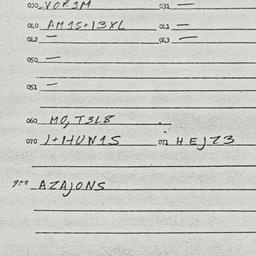 030 VOR1M 031 —
040 AM1S+13XL 041 —
042 — 043 —
050 —
051 —
060 MO, T3L8
070 J+HUN1S 071 HEJZ3
900 AZAJONS